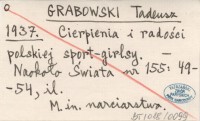 o
GRABOWSKI Tadeusz
1937. Cierpienia i radości
polskiej sport-girlsy. —
Naokoło Świata nr 155: 49-
-54, il.
M. in. narciarstwo.